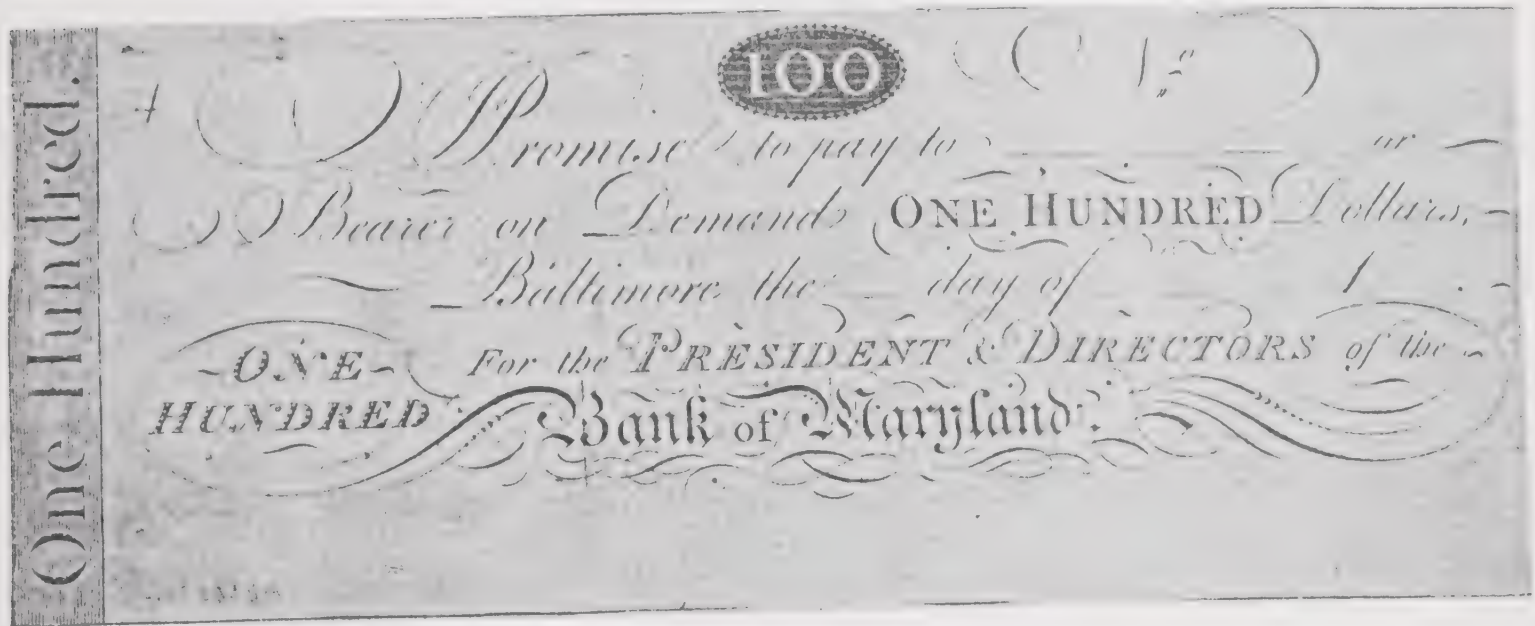 One Hundred.
100
I Promise to pay to or
Bearer on Demand ONE HUNDRED Dollars,
Baltimore the day of 1
ONE
HUNDRED
For the PRESIDENT & DIRECTORS of the
Bank of Maryland.